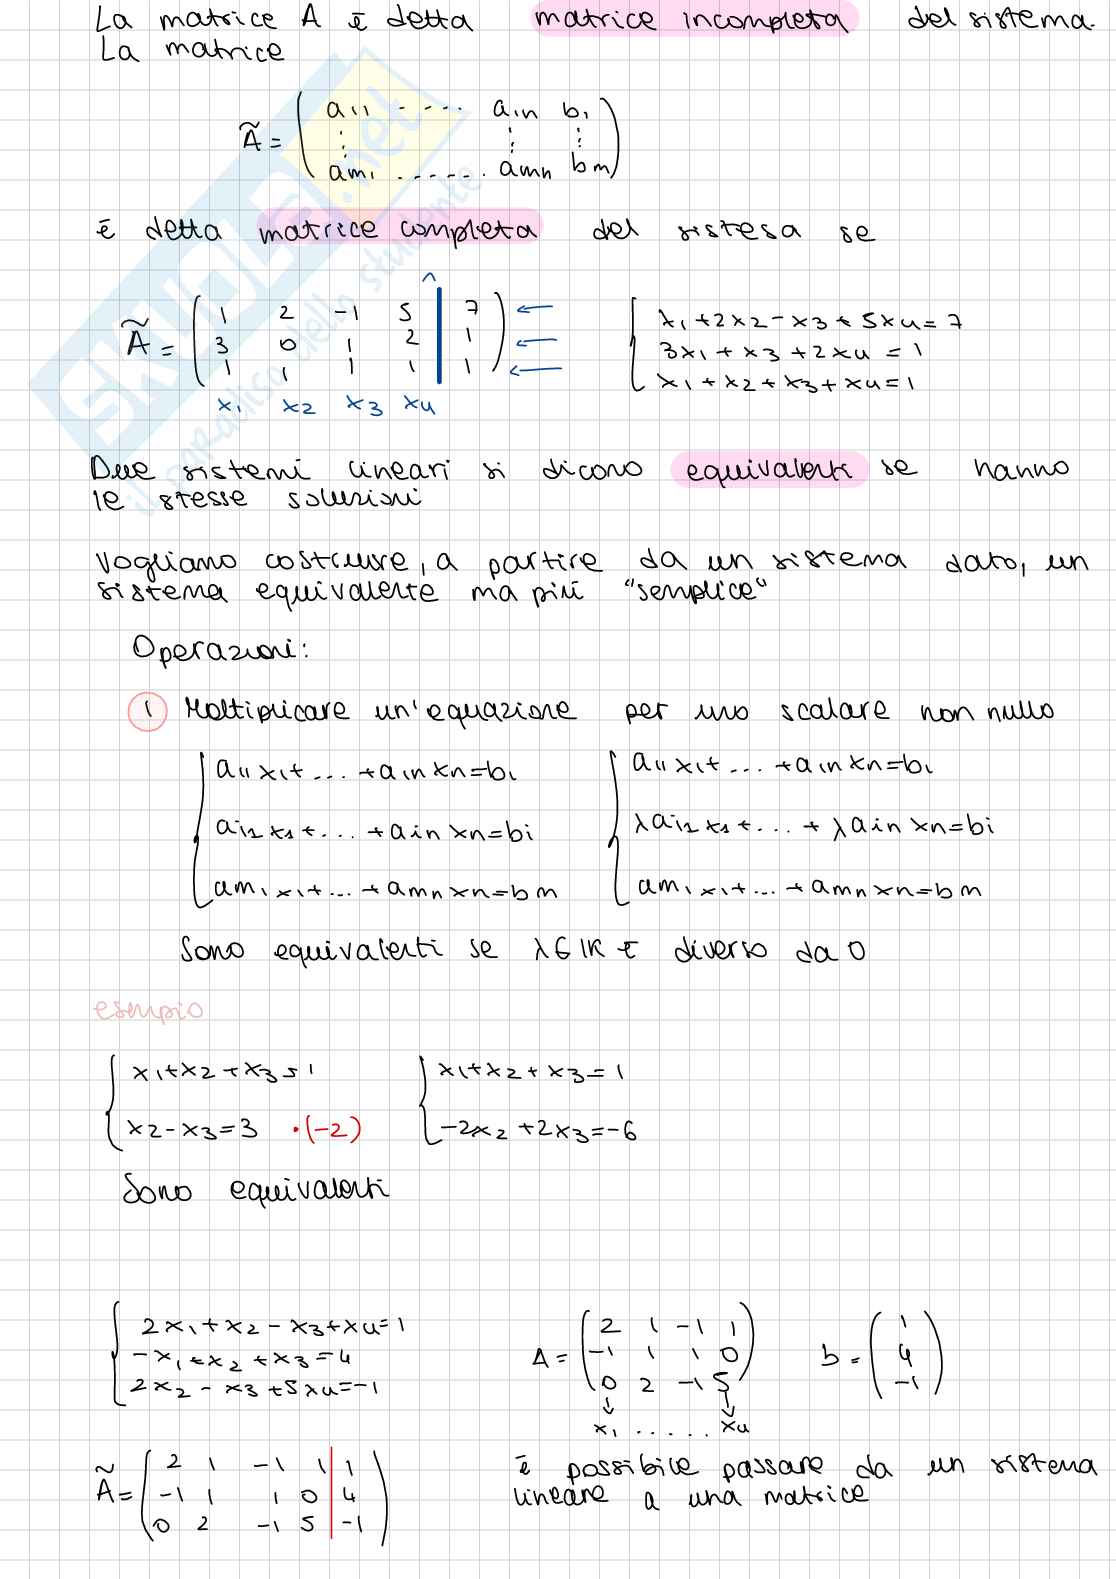 La matrice A è detta matrice incompleta del sistema.
La matrice
Ã = ( a11 ..... a1n b1
⋮ ⋮ ⋮
am1 ...... amn bm )
è detta matrice completa del sistesa se
Ã = ( 1 2 -1 5 | 7 ) ←
3 0 1 2 | 1 ←
1 1 1 1 | 1 ←
x1 x2 x3 x4
{ x1+2x2-x3+5x4=7
3x1+x3+2x4=1
x1+x2+x3+x4=1
Due sistemi lineari si dicono equivalenti se hanno
le stesse soluzioni
Vogliamo costruire, a partire da un sistema dato, un
sistema equivalente ma più "semplice"
Operazioni:
1 Moltiplicare un'equazione per uno scalare non nullo
a11x1+...+a1nxn=b1 a11x1+...+a1nxn=b1
ai1x1+...+ainxn=bi λai1x1+...+λainxn=bi
am1x1+...+amnxn=bm am1x1+...+amnxn=bm
Sono equivalenti se λ∈IK è diverso da 0
esempio
x1+x2+x3=1 x1+x2+x3=1
x2-x3=3 •(-2) -2x2+2x3=-6
Sono equivalenti
2x1+x2-x3+x4=1
-x1+x2+x3=4
2x2-x3+5x4=-1
A = ( 2 1 -1 1
-1 1 1 0
0 2 -1 5 )
x1 ..... x4
b = ( 1
4
-1 )
Ã = ( 2 1 -1 1 | 1
-1 1 1 0 | 4
0 2 -1 5 | -1 )
è possibile passare da un sistema
lineare a una matrice
SKUOLA.net
il paradiso dello studente